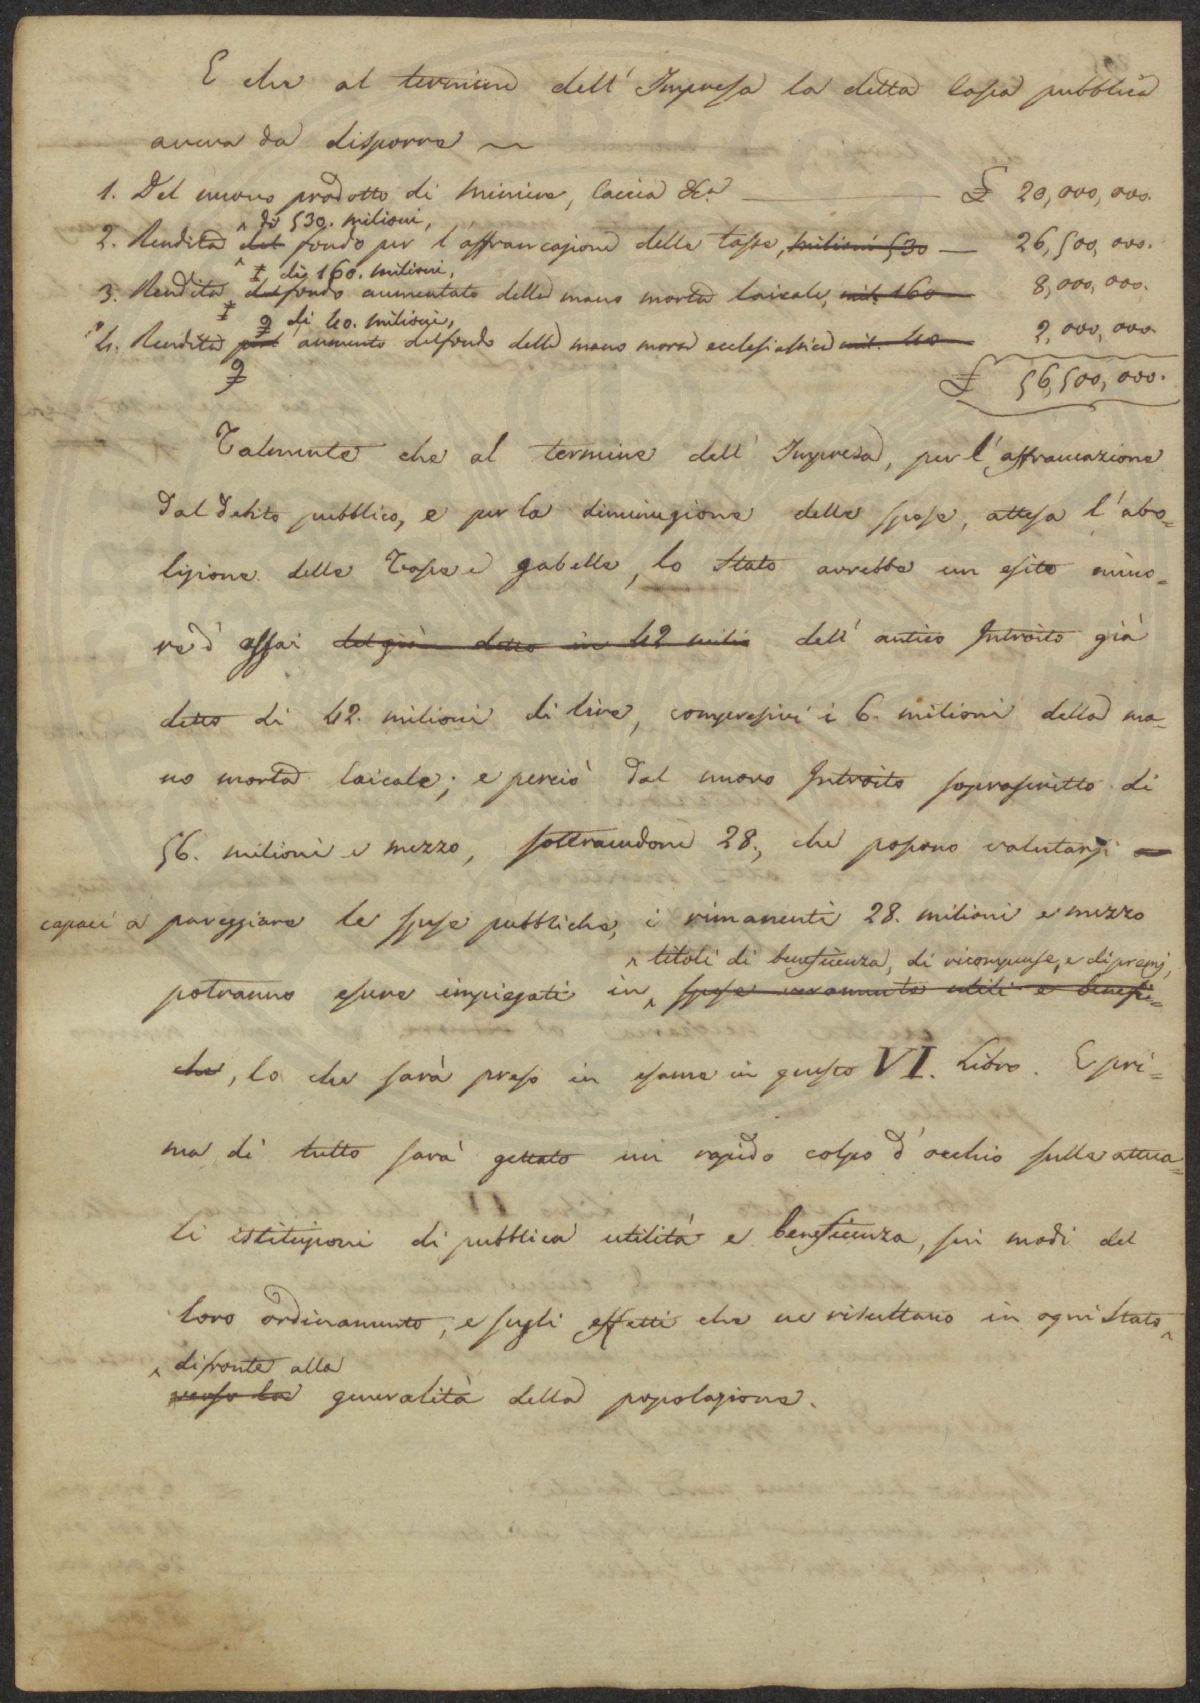 E che al termine dell' Impresa la detta Cassa pubblica
aveva da disporre
1. Del nuovo prodotto di Miniere, Caccia &c.ª £ 20,000,000.
di 530. milioni,
2. Rendita del fondo per l'affrancazione delle Tasse, milioni 530 26,500,000.
di 160. milioni,
3. Rendita del fondo aumentato della mano morta laicale, mil. 160 8,000,000.
di 40. milioni,
4. Rendita pel aumento del fondo della mano morta ecclesiastica mil. 40 2,000,000.
£ 56,500,000.
Talmente che al termine dell' Impresa, per l'affrancazione
dal debito pubblico, e per la diminuzione delle spese, attesa l'abo=
lizione delle Tasse e gabelle, lo Stato avrebbe un esito mino=
re d'assai del già detto in 42 milio dell' antico Introito già
detto di 42. milioni di lire, compresivi i 6. milioni della ma=
no morta laicale; e perciò dal nuovo Introito soprascritto di
56. milioni e mezzo, sottraendone 28., che possono valutarsi
capaci a pareggiare le spese pubbliche, i rimanenti 28. milioni e mezzo
titoli di beneficenza, di ricompense, e di premj,
potranno essere impiegati in spese veramente utili e benefi=
che, lo che sarà preso in esame in questo VI. Libro. E pri=
ma di tutto sarà gettato un rapido colpo d'occhio sulle attua=
li istituzioni di pubblica utilità e beneficenza, sui modi del
loro ordinamento, e sugli effetti che ne risultano in ogni Stato
di fronte alla
verso la generalità della popolazione.